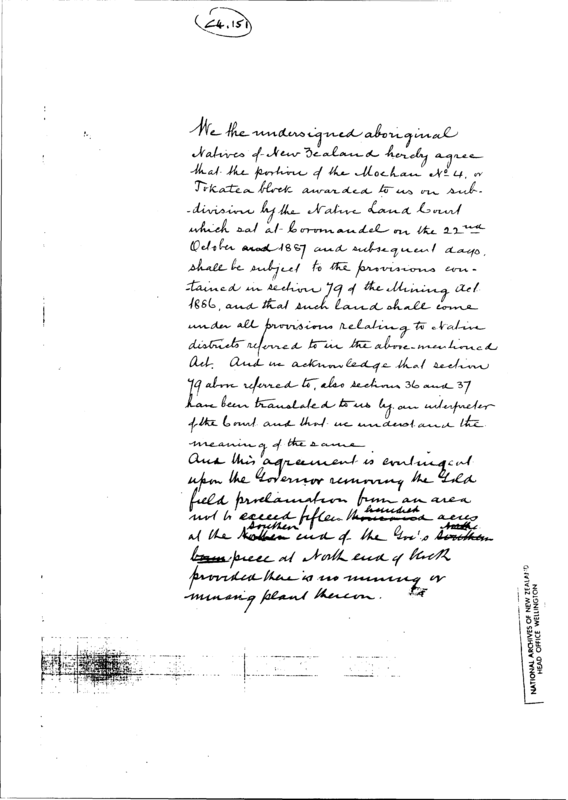 C4.151
We the undersigned aboriginal
Natives of New Zealand hereby agree
that the portion of the Moehau No 4. or
Tokatea block awarded to us on sub-
-division by the Native Land Court
which sat at Coromandel on the 22nd
October and 1887 and subsequent days.
shall be subject to the provisions con-
tained in section 79 of the Mining Act
1886, and that such land shall come
under all provisions relating to Native
districts referred to in the above-mentioned
Act. And we acknowledge that section
79 above referred to, also sections 36 and 37
have been translated to us by an interpreter
of the Court and that we understand the
meaning of the same
And this agreement is contingent
upon the Governor removing the Gold
field proclamation from an area
hundred
not to exceed fifteen thousand acres
Southern North
at the Northern end of the Gov's Southern
piece at North end of block
provided there is no mining or
mining plant thereon.
NATIONAL ARCHIVES OF NEW ZEALAND
HEAD OFFICE WELLINGTON